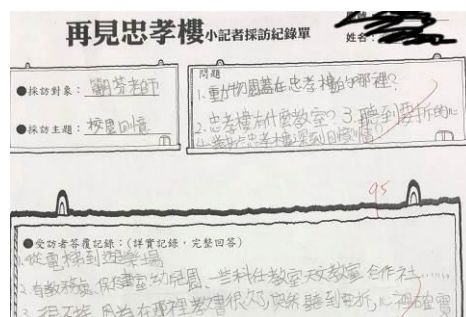 再見忠孝樓小記者採訪紀錄單
姓名：
●採訪對象：芬老師
●採訪主題：校園回憶
問題
1.動物園蓋在忠孝樓的哪裡？
2.忠孝樓有什麼教室？3.聽到要拆的心
95
●受訪者答覆記錄：(詳實記錄，完整回答)
1.從電梯到遊樂場
2.有教務處、保健室、幼兒園、一些科任教室、合作社……
3.很不捨，因為在那裡教書很久了，突然聽到要拆，心裡確實